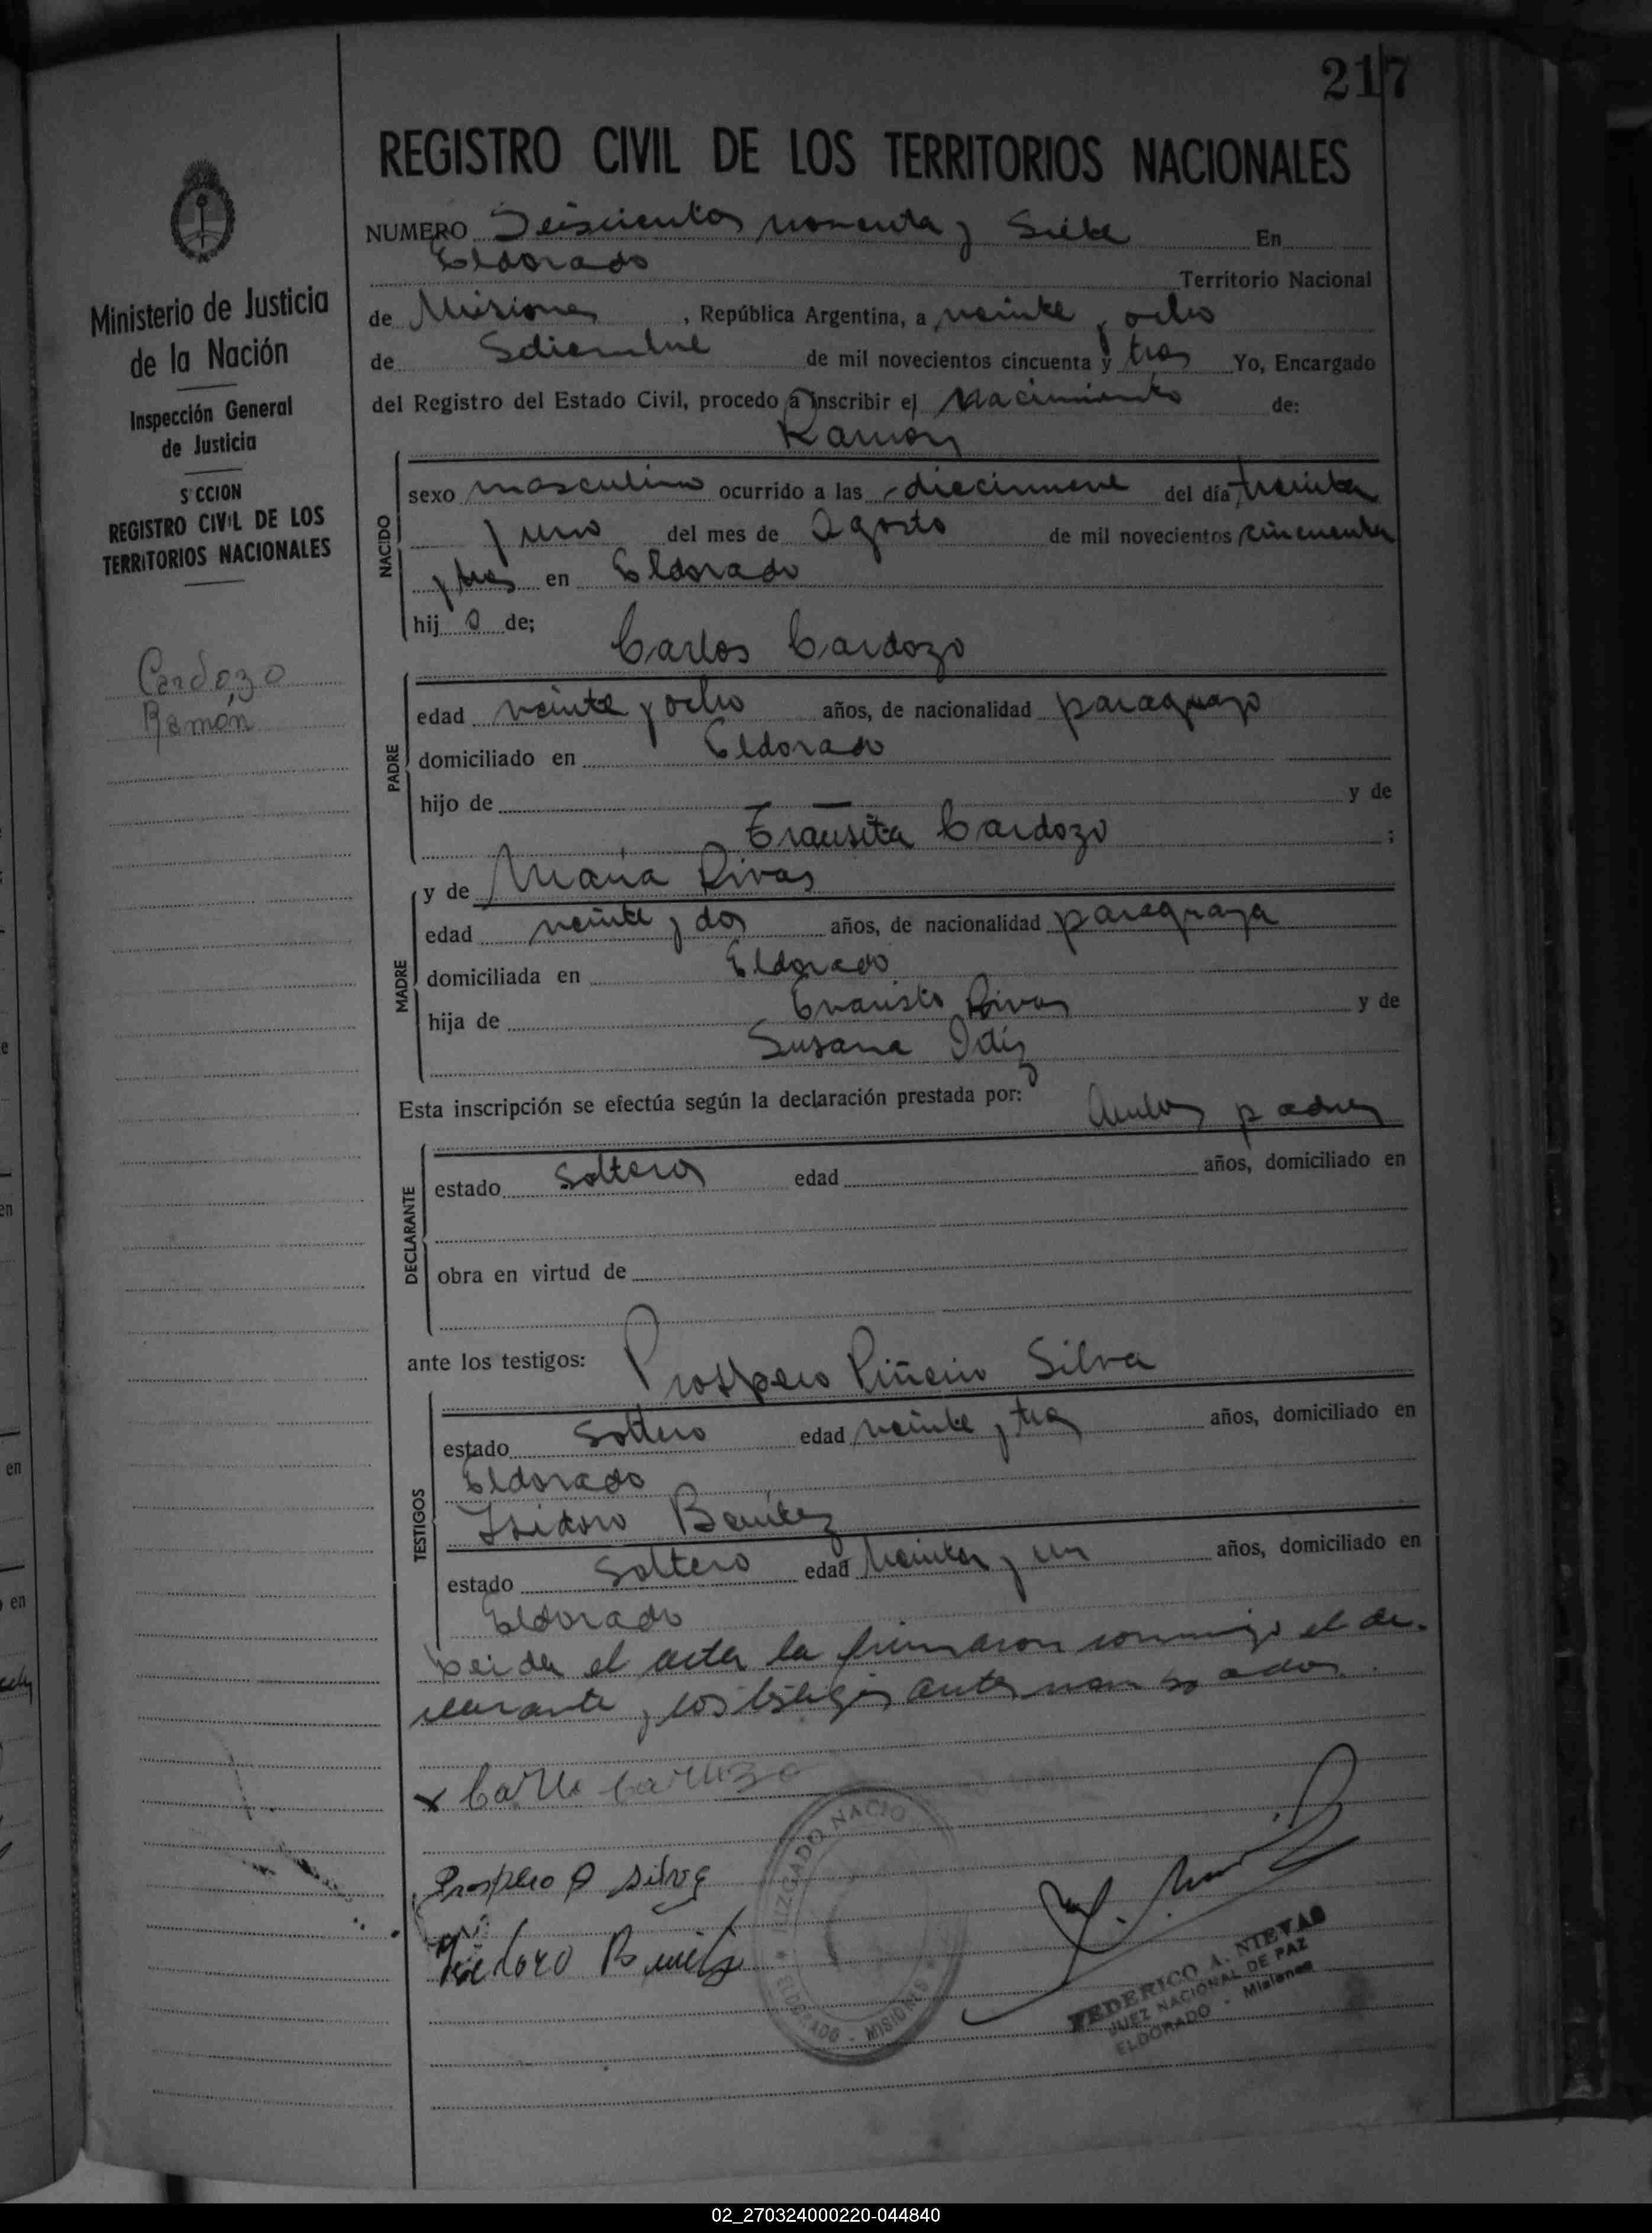 217
REGISTRO CIVIL DE LOS TERRITORIOS NACIONALES
NUMERO Seiscientos noventa y Siete En
Eldorado
Territorio Nacional
de Misiones, República Argentina, a veinte y ocho
de Setiembre de mil novecientos cincuenta y tres Yo, Encargado
del Registro del Estado Civil, procedo a inscribir el Nacimiento de:
Ramon
NACIDO
sexo masculino ocurrido a las diecinueve del día treinta
y uno del mes de Agosto de mil novecientos cincuenta
y tres en Eldorado
hij o de;
Carlos Cardozo
PADRE
edad veinte y ocho años, de nacionalidad paraguayo
domiciliado en Eldorado
hijo de y de
Transita Cardozo ;
MADRE
y de Maria Rivas
edad veinte y dos años, de nacionalidad paraguaya
domiciliada en Eldorado
hija de Evaristo Rivas y de
Susana
Esta inscripción se efectúa según la declaración prestada por: Ambos padres
DECLARANTE
estado solteros edad años, domiciliado en
obra en virtud de
ante los testigos: Prospero Piñeiro Silva
TESTIGOS
estado Soltero edad veinte y tres años, domiciliado en
Eldorado
Isidoro Benitez
estado Soltero edad treinta y un años, domiciliado en
Eldorado
Leida el acta la firmaron conmigo el de-
clarante y los testigos antes nombrados.
x Carlo
Prospero P Silva
Isidoro Benitez
JUZGADO NACIO
ELDORADO - MISIONES
FEDERICO A. NIEVAS
JUEZ NACIONAL DE PAZ
ELDORADO - Misiones
Ministerio de Justicia
de la Nación
Inspección General
de Justicia
S CCION
REGISTRO CIVIL DE LOS
TERRITORIOS NACIONALES
Cardozo
Ramón
02_270324000220-044840